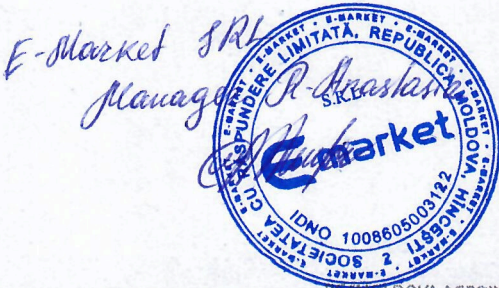 E-Market SRL
Manager R. Anastasia
SOCIETATEA CU RĂSPUNDERE LIMITATĂ, REPUBLICA MOLDOVA, HÎNCEȘTI 2
E-MARKET · E-MARKET · E-MARKET · E-MARKET
S.R.L.
Emarket
IDNO 1008605003122